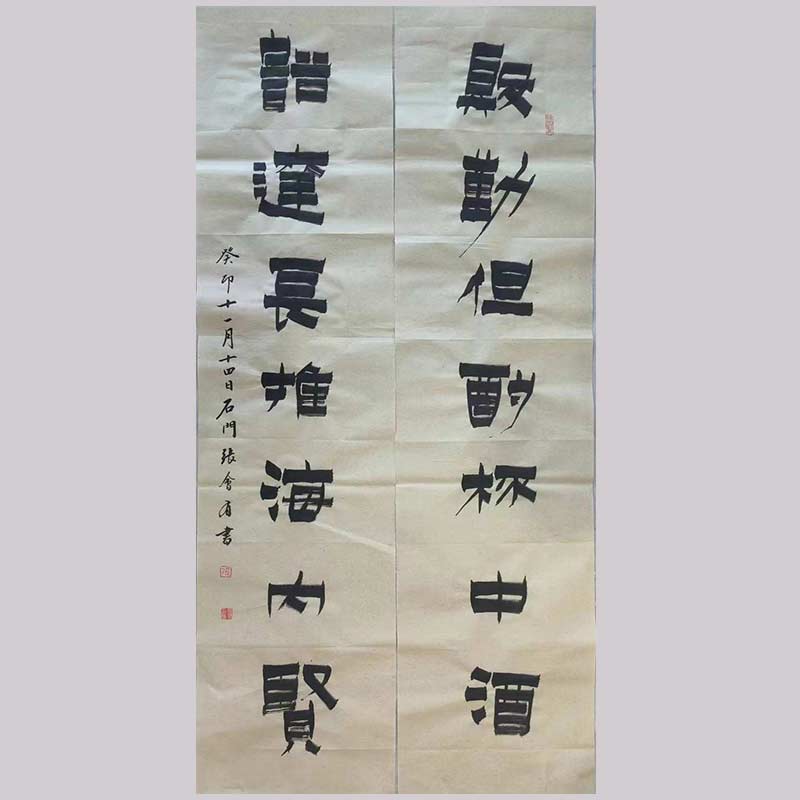 殷勤但酌杯中酒
豁達長推海内賢
癸卯十一月十四日石門張會有書